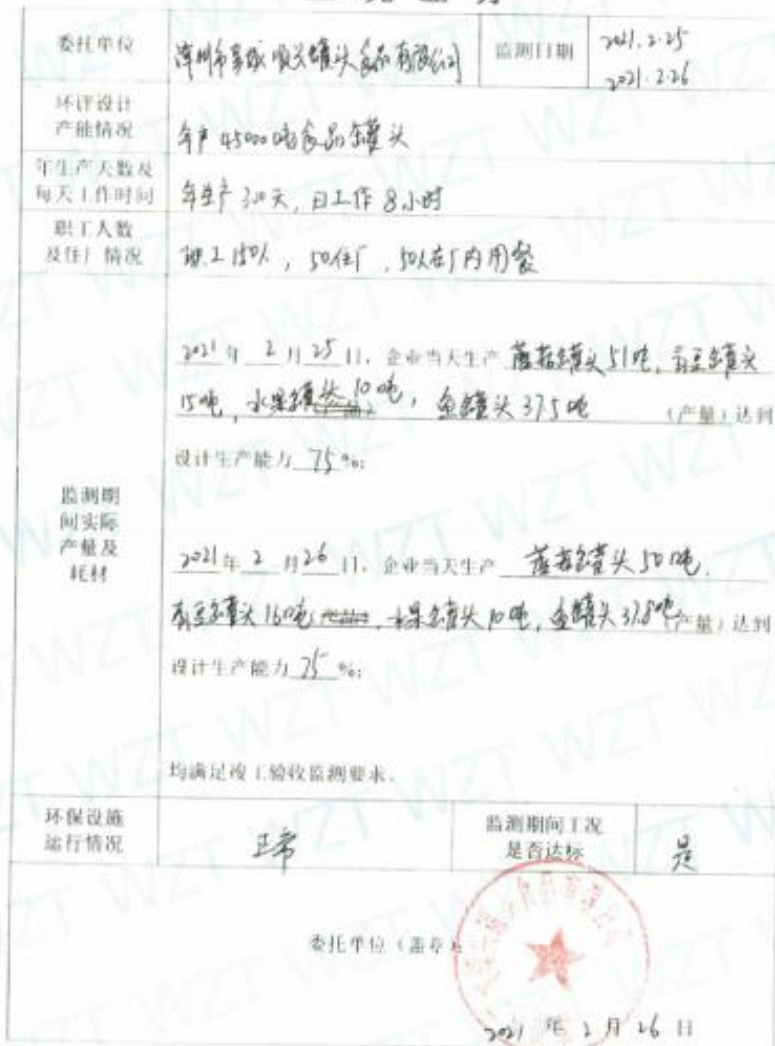 委托单位
漳州市芗城顺兴罐头食品有限公司
监测日期
2021.2.25
2021.2.26
环评设计
产能情况
年产45000吨食品罐头
年生产天数及
每天工作时间
年生产300天,日工作8小时
职工人数
及住厂情况
职工150人,50住厂,50人在厂内用餐
监测期
间实际
产量及
耗材
2021年2月25日,企业当天生产蘑菇罐头51吨,青豆罐头
15吨,水果罐头10吨,鱼罐头37.5吨(产量)达到
设计生产能力75%;
2021年2月26日,企业当天生产蘑菇罐头50吨,
青豆罐头16吨,水果罐头10吨,鱼罐头37.8吨(产量)达到
设计生产能力75%;
均满足竣工验收监测要求。
环保设施
运行情况
正常
监测期间工况
是否达标
是
委托单位(盖章)
2021年2月26日
WZT